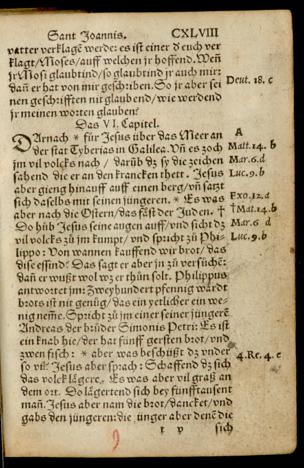 Sant Joannis. CXLVIII
vatter verklagē werde: es ist einer d̄ euch ver
klagt/Moses/auff welchen jr hoffend. Weñ
jr Mosi glaubtind/so glaubtind jr auch mir:
dañ er hat von mir geschriben. So jr aber sei
nen geschrifften nit glaubend/wie werdend
jr meinen worten glauben?
Deut. 18. c
Das VI. Capitel.
DArnach * fůr Jesus über das Meer an
der stat Tyberias in Galilea. Uñ es zoch
jm vil volcks nach / darūb dz sy die zeichen
sahend die er an den krancken thett. Jesus
aber gieng hinauff auff einen berg/vñ satzt
sich daselbs mit seinen jüngeren. * Es was
aber nach die Ostern/das fäst der Juden. †
Do hůb Jesus seine augen auff/vnd sicht dz
vil volcks zů jm kumpt/ vnd spricht zů Phi-
lippo: Von wannen kauffend wir brot/ das
dise essind? Das sagt er aber jn zů versůchē:
dañ er wußt wol wz er thůn solt. Philippus
antwortet jm: Zweyhundert pfennig wärdt
brots ist nit genůg/das ein yetlicher ein we-
nig neme. Spricht zů jm einer seiner jüngerē
Andreas der brůder Simonis Petri: Es ist
ein knab hie/der hat fünff gersten brot/vnd
zwen fisch: * aber was beschüßt dz vnder
so vil? Jesus aber sprach: Schaffend dz sich
das volck lägere. Es was aber vil graß an
dem ort. Do lägertend sich bey fünfftausent
mañ. Jesus aber nam die brot/dancket/vnd
gabs den jüngeren: die jünger aber denē die
A
Matt. 14. b
Mar. 6. d
Luc. 9. b
Exo. 12. a
†Mat. 14. b
Mar. 6 d
Luc. 9. b
4. Re. 4. e
t y sich